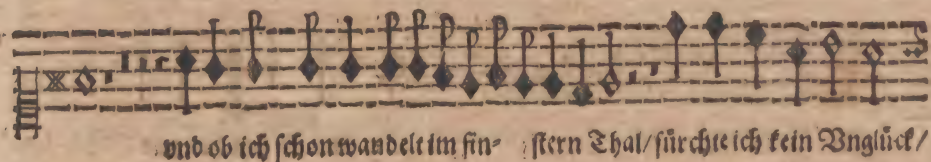 vnd ob ich schon wandelt im fin- stern Thal/ fürchte ich kein Vnglück/